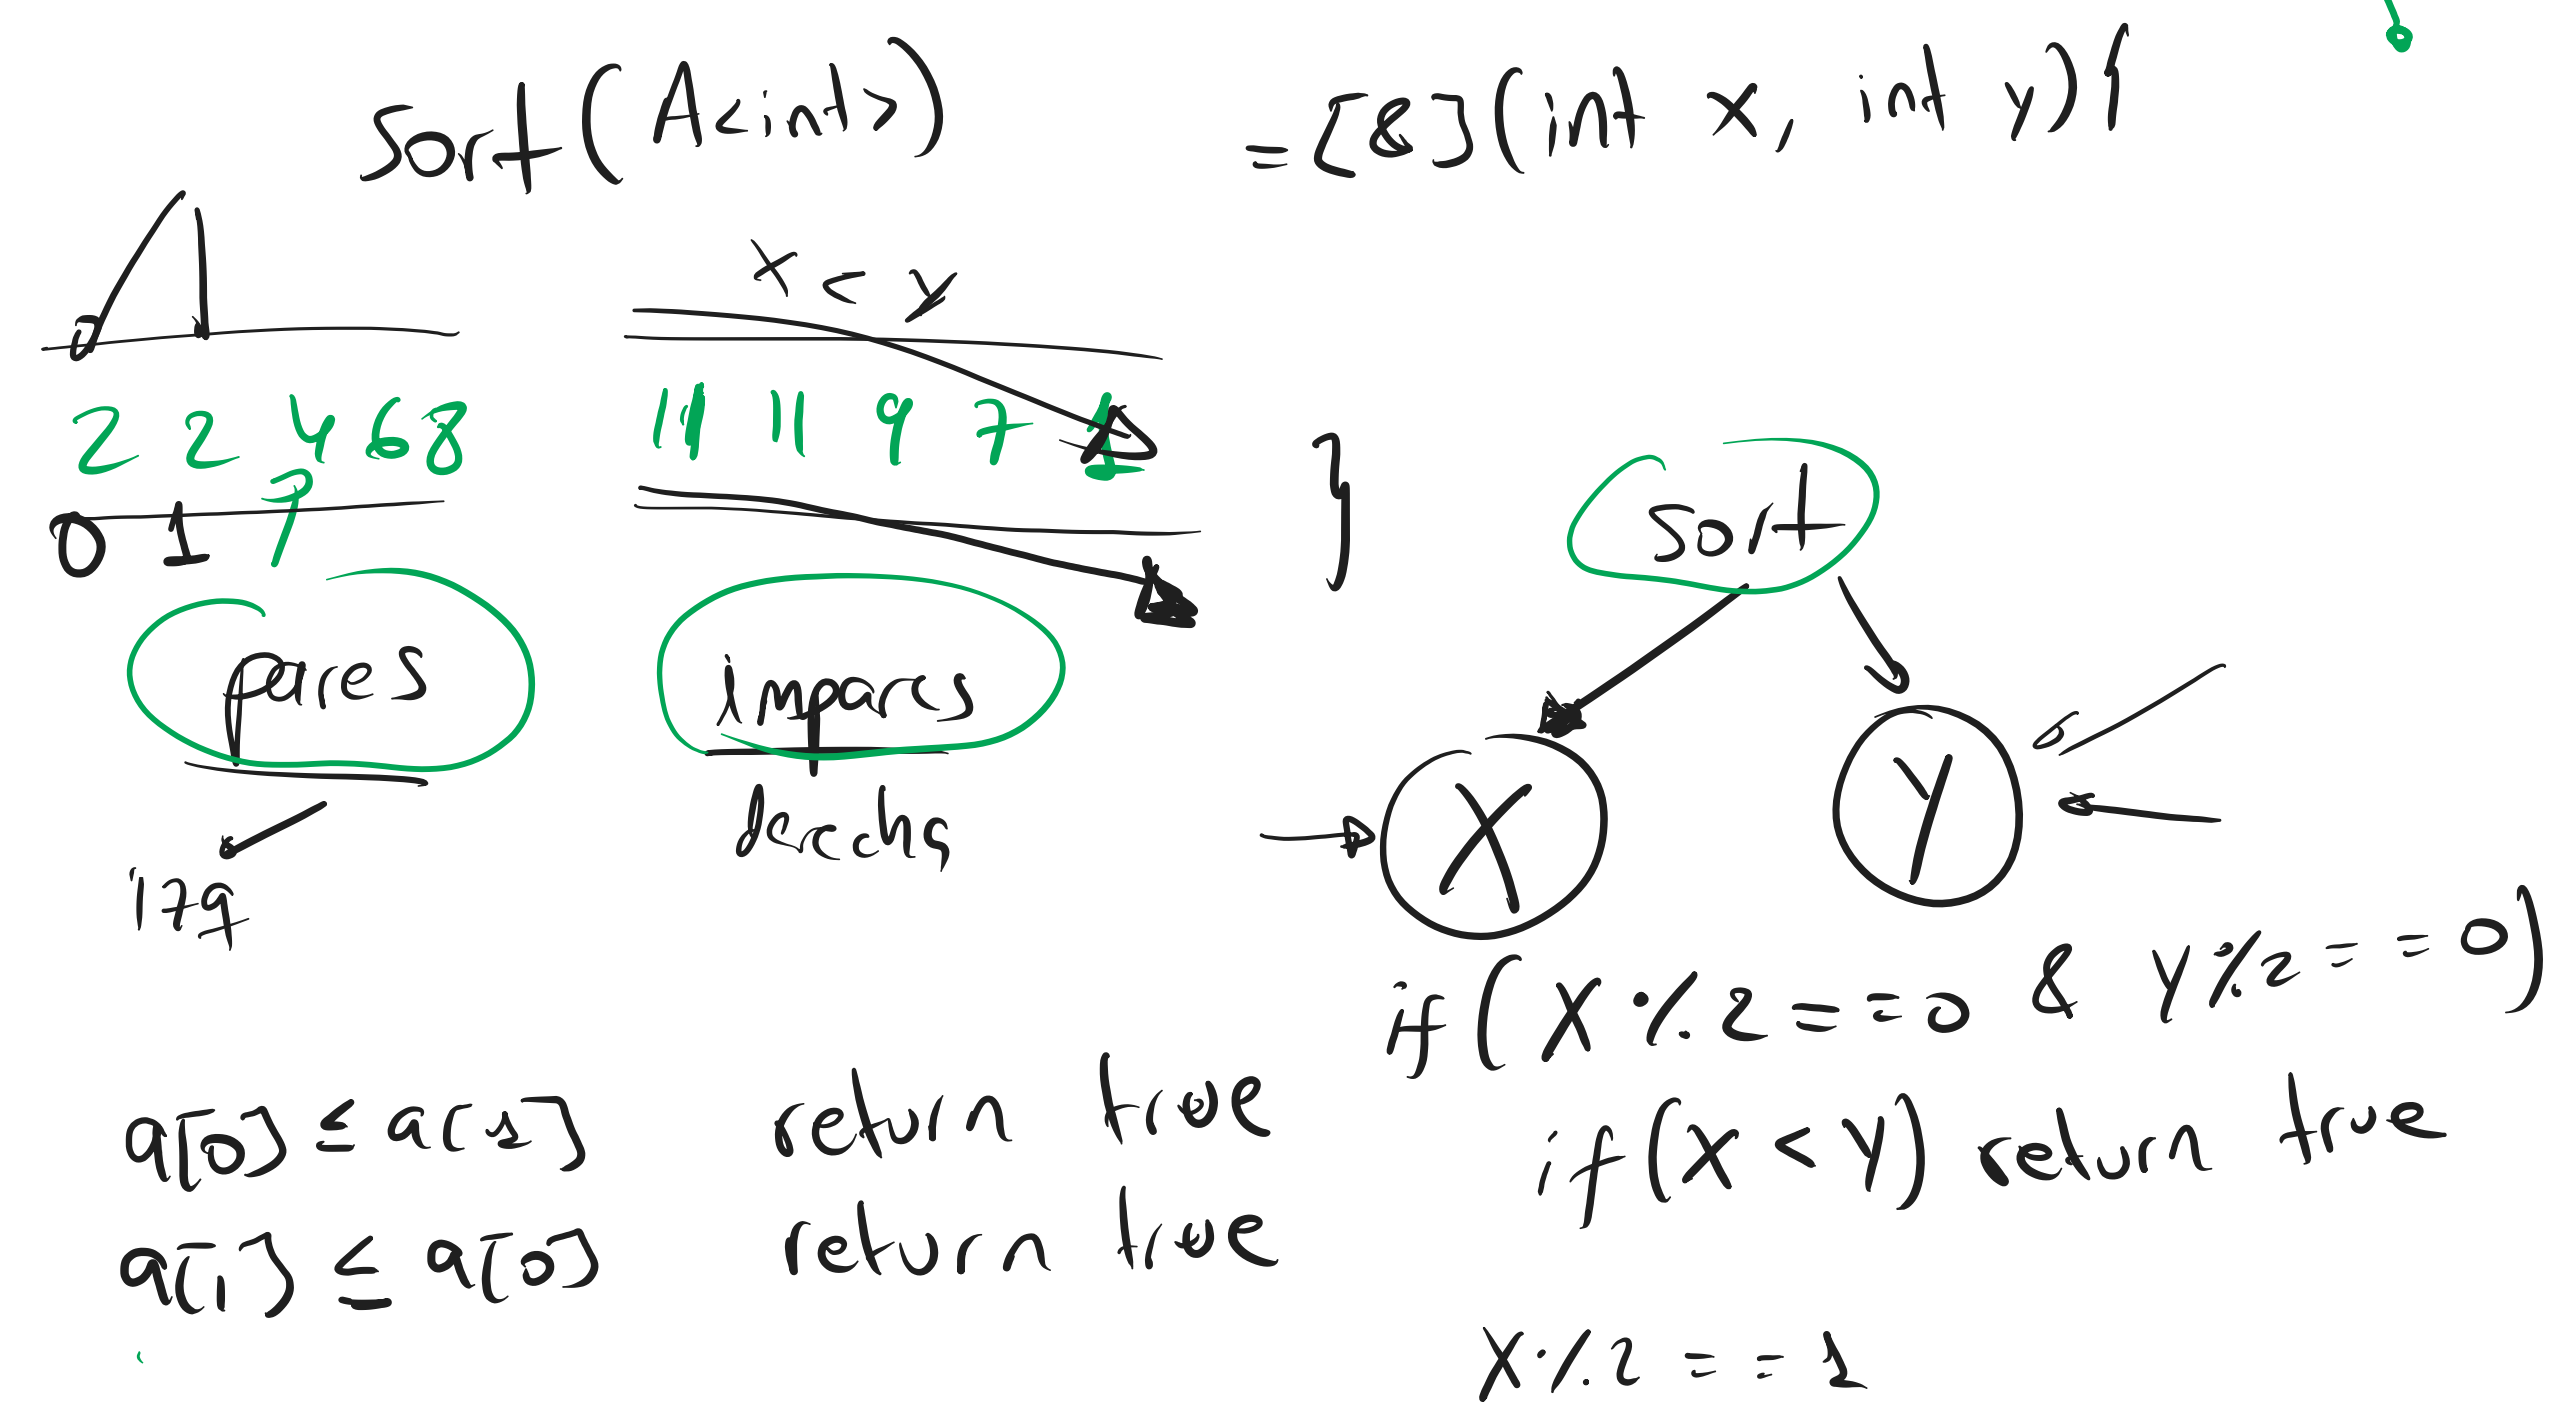 Sort(A<int>) = [&](int x, int y){
x < y
2 2 4 6 8 11 11 9 7 1
0 1 7
}
sort
pares impares
izq derecha
X Y
if(X % 2 == 0 & Y % 2 == 0)
a[0] ≤ a[1] return true
if(X < Y) return true
a[1] ≤ a[0] return true
X % 2 == 1